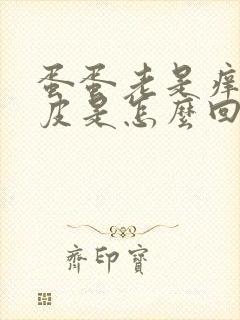 蛋蛋老是痒
皮是怎麽回
齊印寶